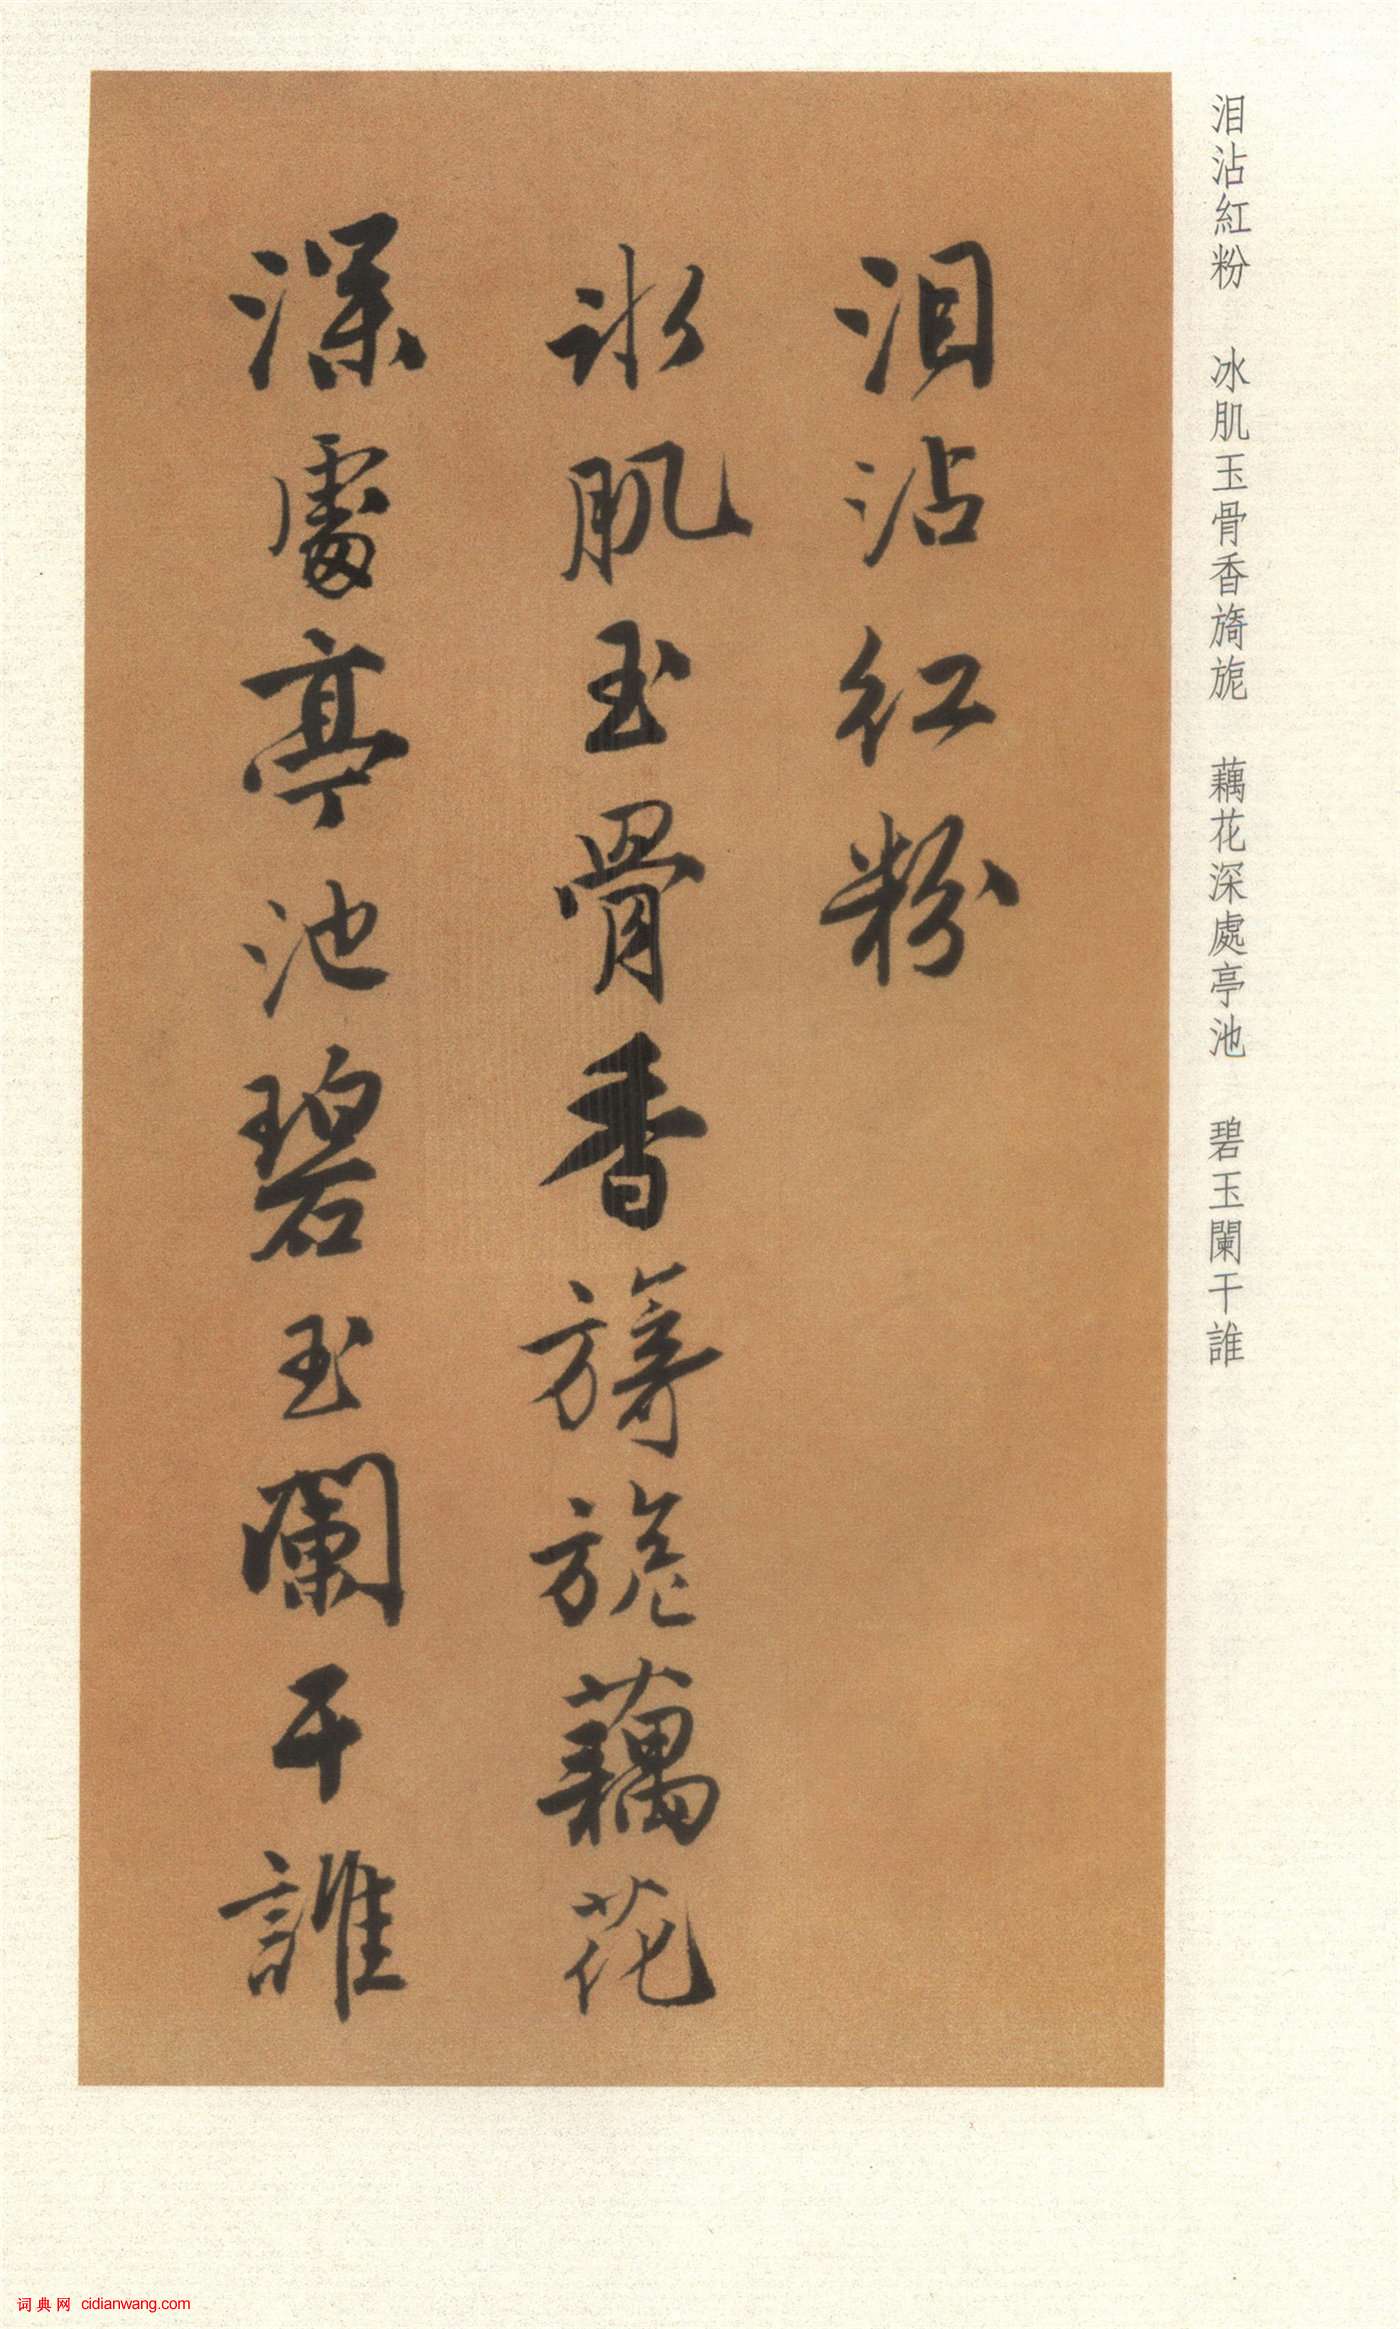 泪沾紅粉　冰肌玉骨香旖旎　藕花深處亭池　碧玉闌干誰
泪沾红粉
冰肌玉骨香旖旎藕花
深處亭池碧玉闌干誰
词典网 cidianwang.com